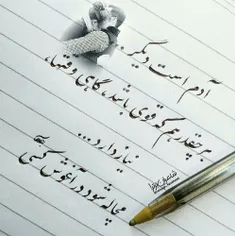 آدم است دیگر
هر چقدر هم که قوی باشد، گاهی وقتها
نیاز دارد...
مچاله شود در آغوش کسی